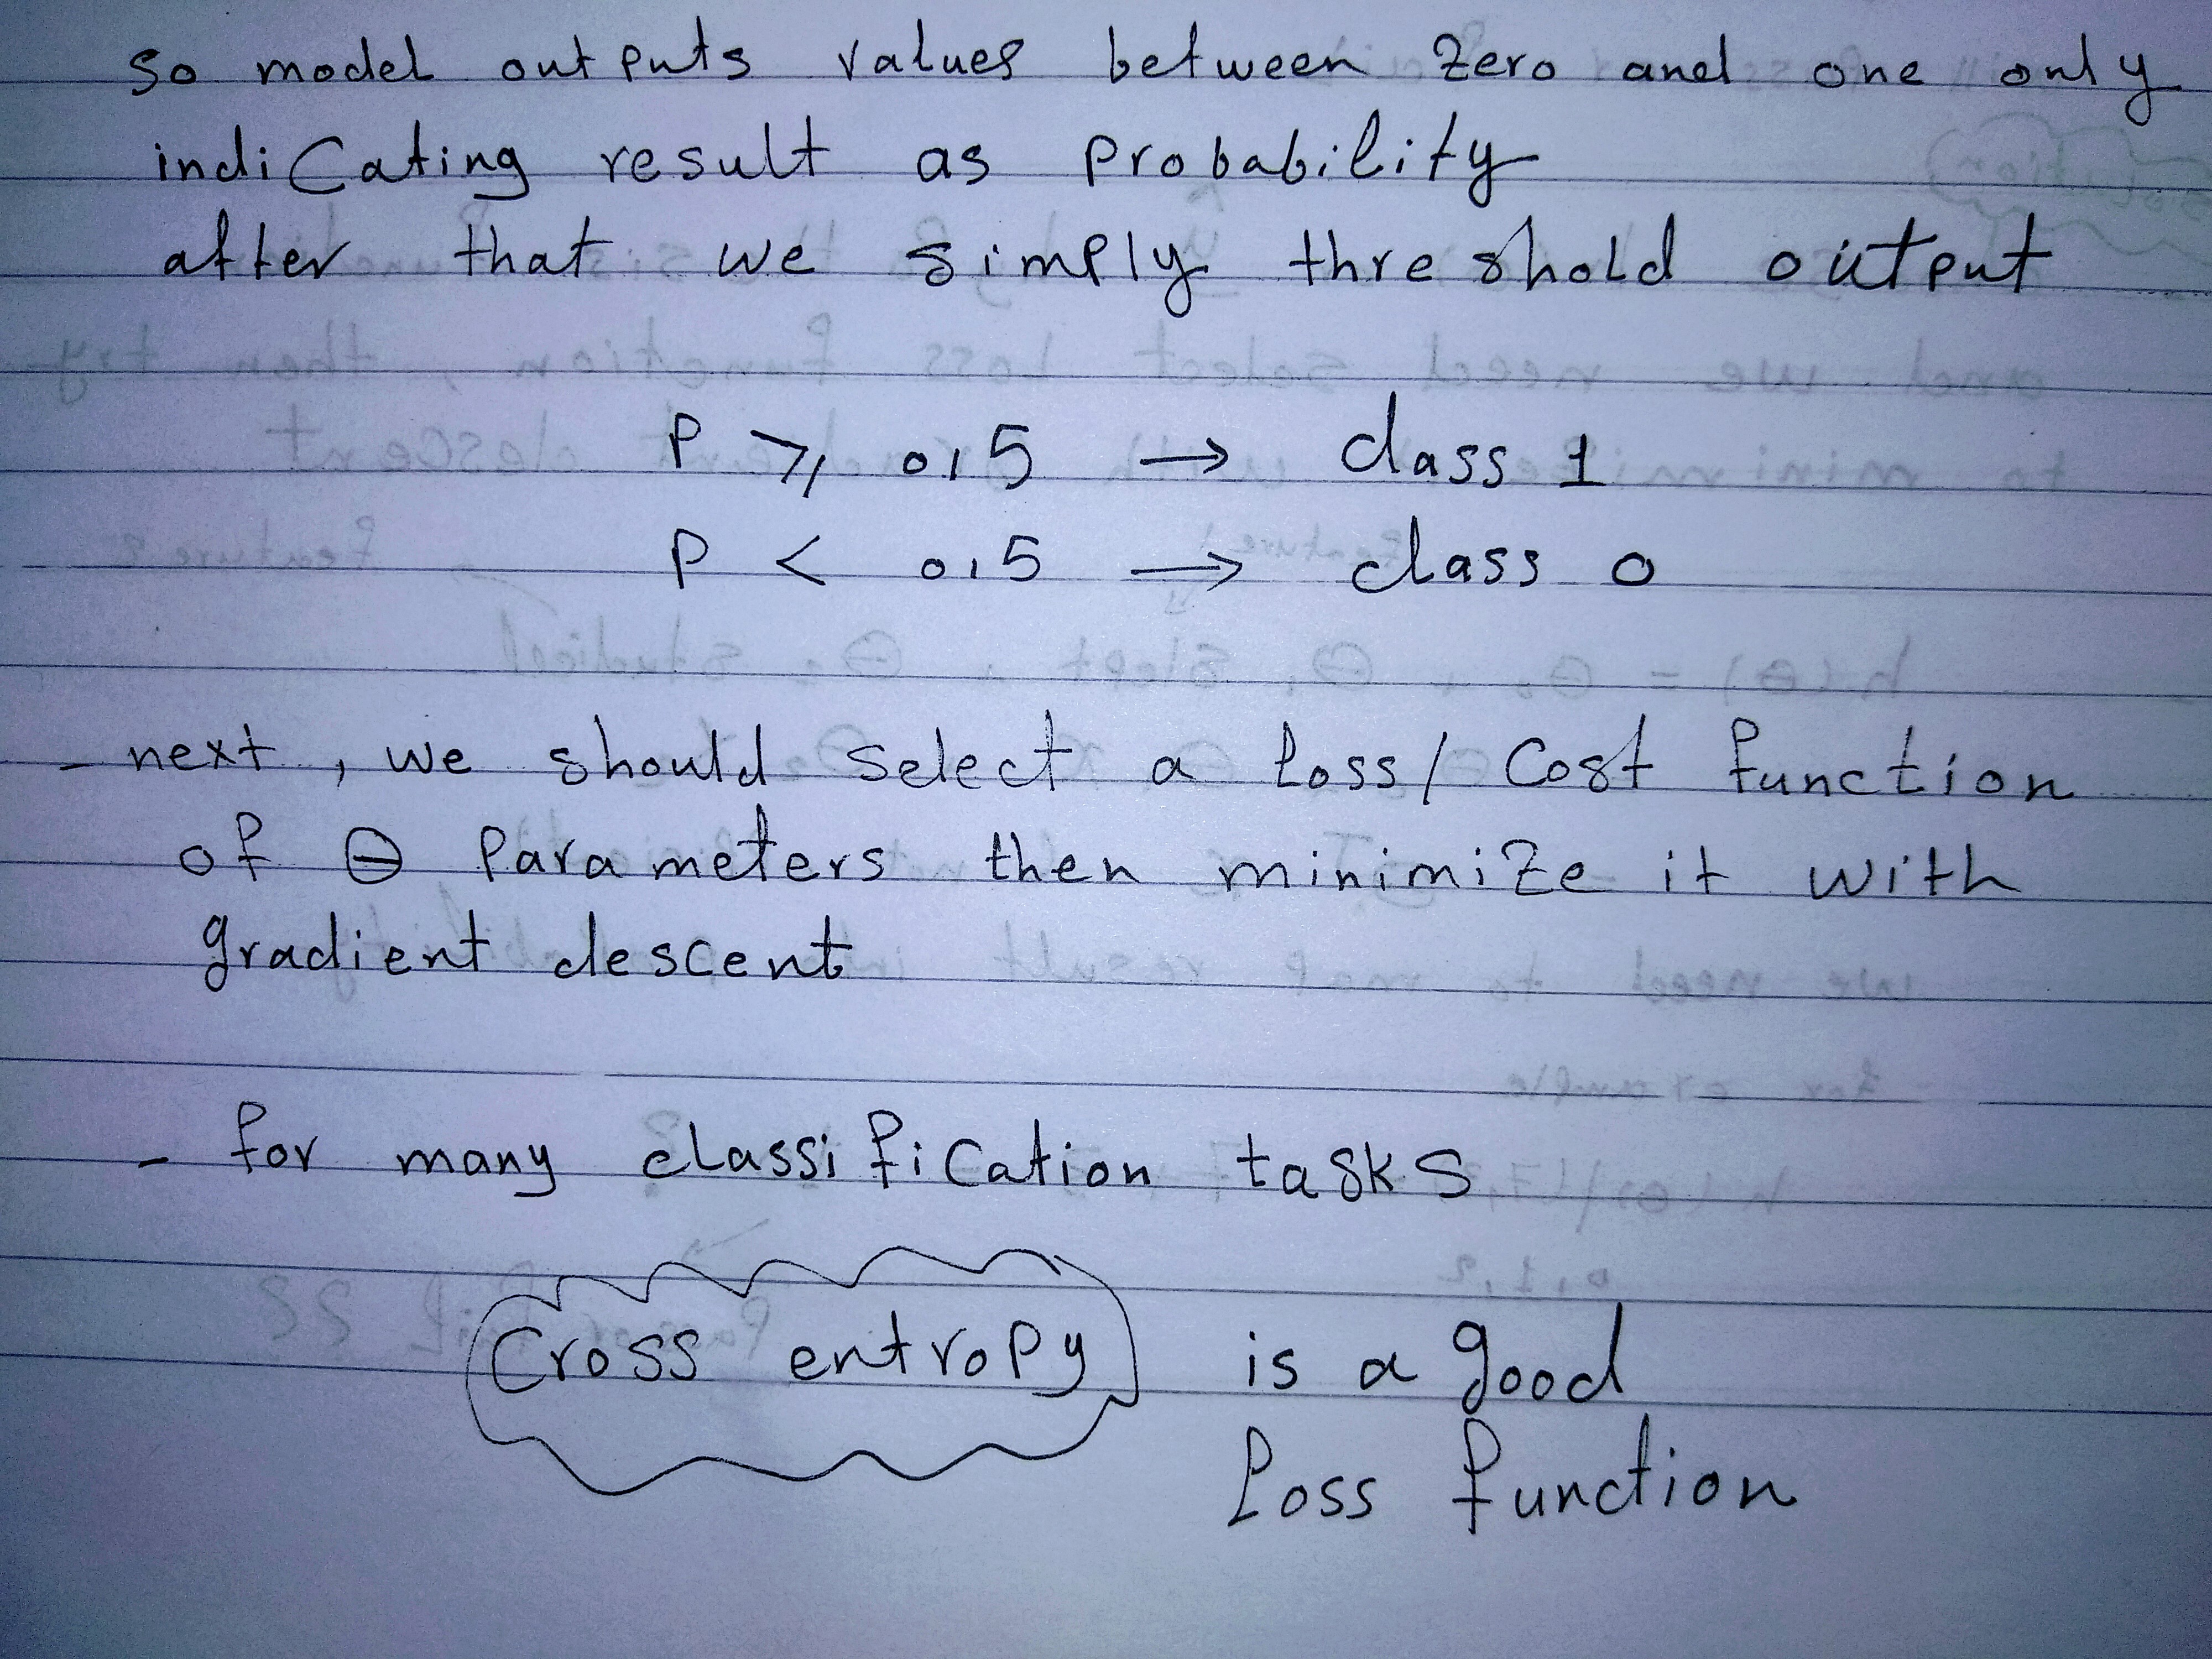 so model outputs values between zero and one only
indicating result as probability
after that we simply threshold output
P ≥ 0,5 → class 1
P < 0,5 → class 0
- next, we should select a loss/cost function
of θ parameters then minimize it with
gradient descent
- for many classification tasks
Cross entropy is a good
loss function